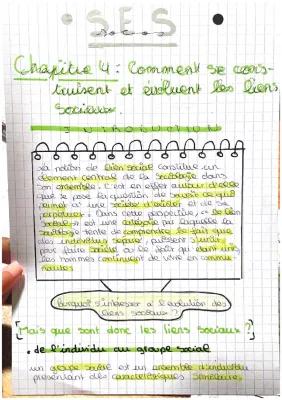 S.E.S
Chapitre 4 : Comment se cons-
truisent et évoluent les liens
sociaux.
INTRODUCTION
La notion de lien social constitue un
élément centrale de la sociologie dans
son ensemble. C'est en effet autour d'elle
que se pose la question de savoir ce qui
permet à une société d'exister et de se
perpétuer. Dans cette perspective, "le lien
social" est une catégorie par laquelle la
tente de comprendre le fait que
des individus séparés, puissent s'unir
pour faire société ou le fait qu'étant unis,
les hommes continuent de vivre en commu-
nauté.
Pourquoi s'intéresser à l'évolution des
liens sociaux ?
[Mais que sont donc les liens sociaux ?]
• de l'individu au groupe social
un groupe social est un ensemble d'individu
présentant des caractéristiques similaires,